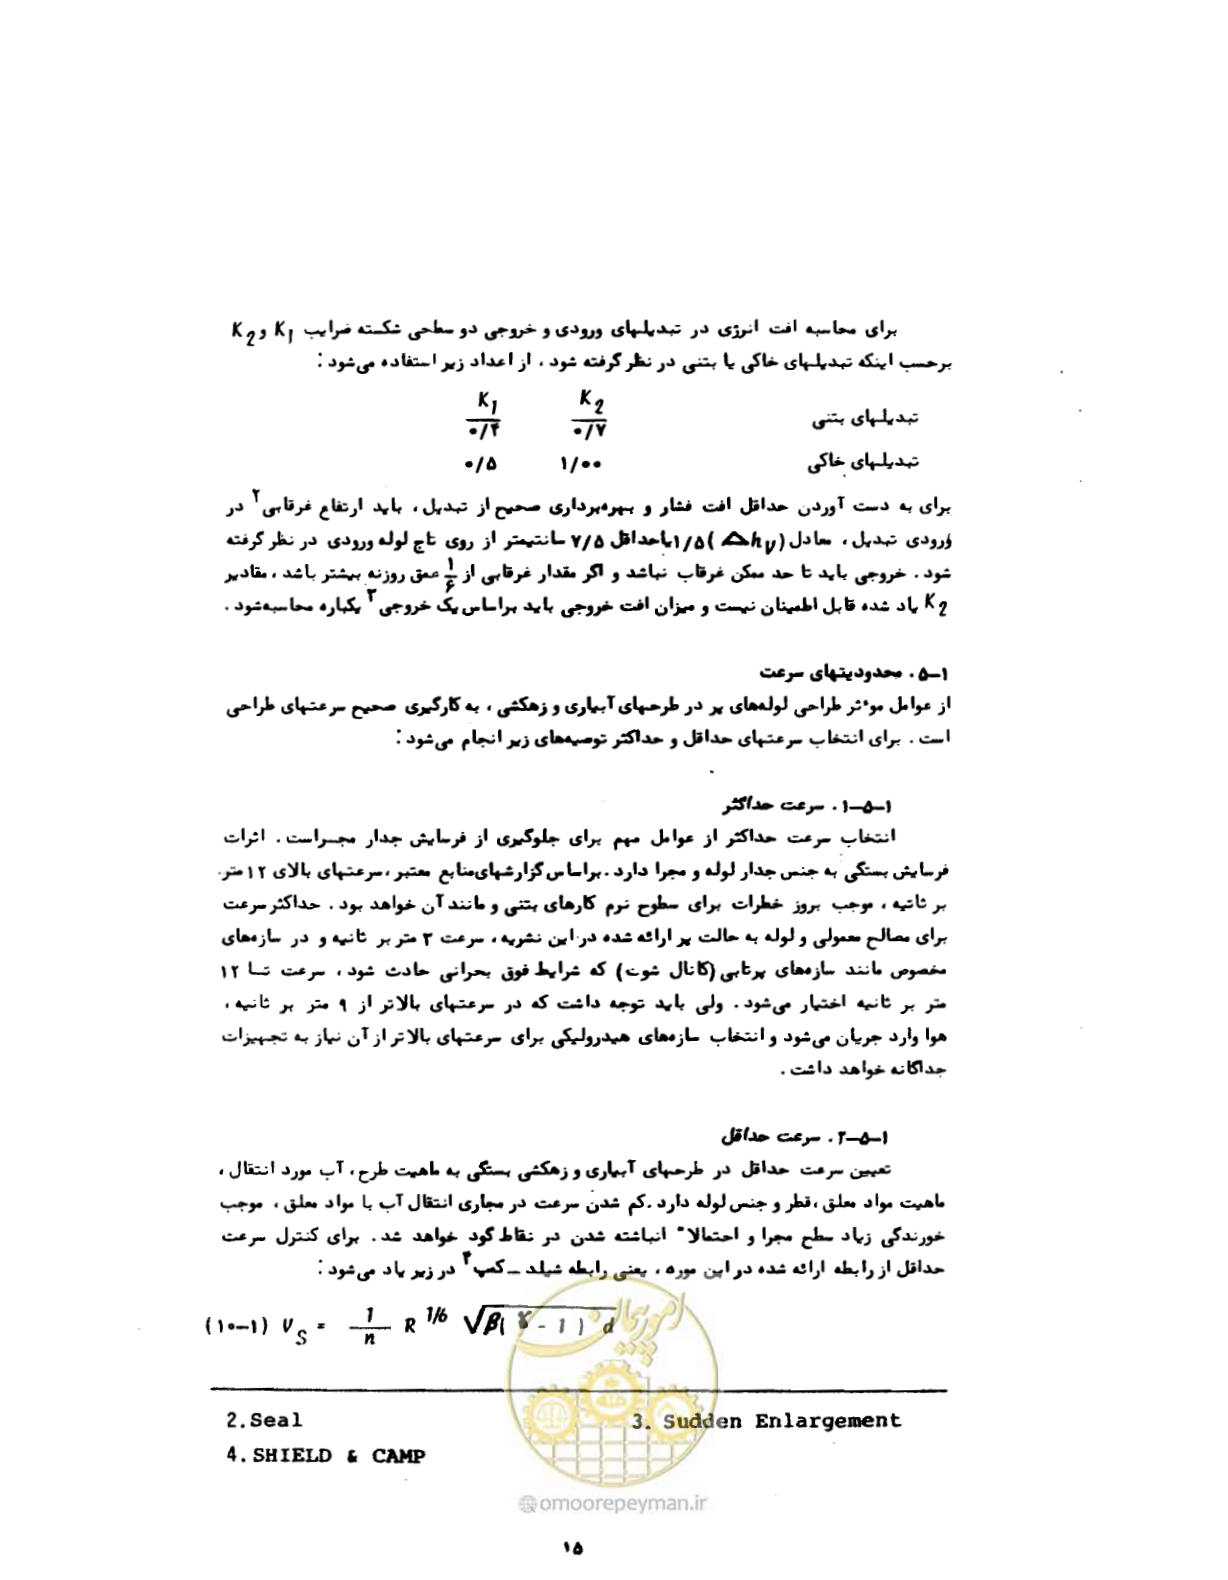 برای محاسبه افت انرژی در تبدیلهای ورودی و خروجی دو سطحی شکسته ضرایب K1 و K2
برحسب اینکه تبدیلهای خاکی یا بتنی در نظر گرفته شود ، از اعداد زیر استفاده می‌شود :
K1 K2
تبدیلهای بتنی ۰/۷ ۰/۴
تبدیلهای خاکی ۱/۰۰ ۰/۵
برای به دست آوردن حداقل افت فشار و بهره‌برداری صحیح از تبدیل ، باید ارتفاع غرقابی۲ در
ورودی تبدیل ، معادل (Δhv) ۱/۵ یا حداقل ۷/۵ سانتیمتر از روی تاج لوله ورودی در نظر گرفته
شود . خروجی باید تا حد ممکن غرقاب نباشد و اگر مقدار غرقابی از ۱/۶ عمق روزنه بیشتر باشد ، مقادیر
K2 یاد شده قابل اطمینان نیست و میزان افت خروجی باید براساس یک خروجی۳ یکباره محاسبه‌شود .
۱-۵ . محدودیتهای سرعت
از عوامل موءثر طراحی لوله‌های پر در طرحهای آبیاری و زهکشی ، به کارگیری صحیح سرعتهای طراحی
است . برای انتخاب سرعتهای حداقل و حداکثر توصیه‌های زیر انجام می‌شود :
۱-۵-۱ . سرعت حداکثر
انتخاب سرعت حداکثر از عوامل مهم برای جلوگیری از فرسایش جدار مجراست . اثرات
فرسایش بستگی به جنس جدار لوله و مجرا دارد . براساس گزارشهای‌منابع معتبر ، سرعتهای بالای ۱۲ متر
بر ثانیه ، موجب بروز خطرات برای سطوح نرم کارهای بتنی و مانند آن خواهد بود . حداکثر سرعت
برای مصالح معمولی و لوله به حالت پر ارائه شده در این نشریه ، سرعت ۳ متر بر ثانیه و در سازه‌های
مخصوص مانند سازه‌های پرتابی (کانال شوت) که شرایط فوق بحرانی حادث شود ، سرعت تا ۱۲
متر بر ثانیه اختیار می‌شود . ولی باید توجه داشت که در سرعتهای بالاتر از ۹ متر بر ثانیه ،
هوا وارد جریان می‌شود و انتخاب سازه‌های هیدرولیکی برای سرعتهای بالاتر از آن نیاز به تجهیزات
جداگانه خواهد داشت .
۱-۵-۲ . سرعت حداقل
تعیین سرعت حداقل در طرحهای آبیاری و زهکشی بستگی به ماهیت طرح ، آب مورد انتقال ،
ماهیت مواد معلق ، قطر و جنس لوله دارد . کم شدن سرعت در مجاری انتقال آب با مواد معلق ، موجب
خورندگی زیاد سطح مجرا و احتمالا" انباشته شدن در نقاط گود خواهد شد . برای کنترل سرعت
حداقل از رابطه ارائه شده در این مورد ، یعنی رابطه شیلد ــ کمپ۴ در زیر یاد می‌شود :
(۱۰-۱) VS = 1/n R^1/6 √β(γ - 1) d
امور پیمان
2.Seal 3. Sudden Enlargement
4.SHIELD & CAMP
@omoorepeyman.ir
۱۵